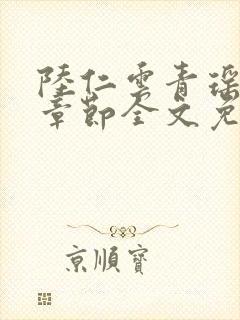 陸仁雲青瑶
章節全文免
京順寶